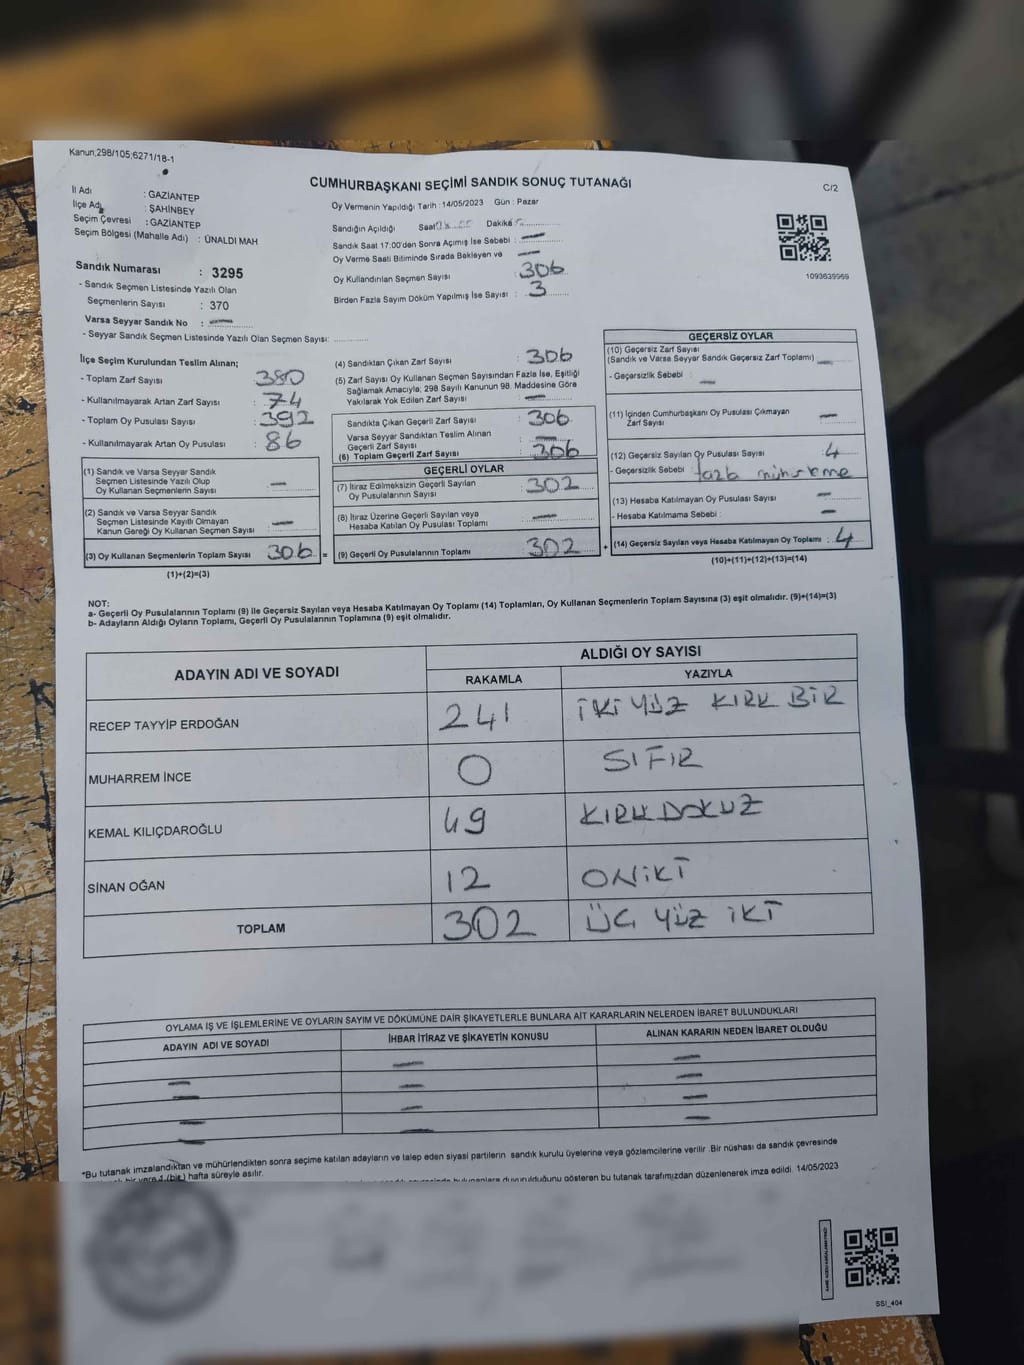 Kanun;298/105;6271/18-1
CUMHURBAŞKANI SEÇİMİ SANDIK SONUÇ TUTANAĞI
C/2
İl Adı : GAZİANTEP
İlçe Adı : ŞAHİNBEY
Seçim Çevresi : GAZİANTEP
Seçim Bölgesi (Mahalle Adı) : ÜNALDI MAH
Sandık Numarası : 3295
- Sandık Seçmen Listesinde Yazılı Olan
Seçmenlerin Sayısı : 370
Varsa Seyyar Sandık No : —
- Seyyar Sandık Seçmen Listesinde Yazılı Olan Seçmen Sayısı:
Oy Vermenin Yapıldığı Tarih :14/05/2023 Gün : Pazar
Sandığın Açıldığı Saat Dakika
Sandık Saat 17:00'den Sonra Açılmış İse Sebebi : —
Oy Verme Saati Bitiminde Sırada Bekleyen ve —
Oy Kullandırılan Seçmen Sayısı : 306
Birden Fazla Sayım Döküm Yapılmış İse Sayısı : 3
1093639969
İlçe Seçim Kurulundan Teslim Alınan;
- Toplam Zarf Sayısı : 380
- Kullanılmayarak Artan Zarf Sayısı : 74
- Toplam Oy Pusulası Sayısı : 392
- Kullanılmayarak Artan Oy Pusulası : 86
(1) Sandık ve Varsa Seyyar Sandık
Seçmen Listesinde Yazılı Olup
Oy Kullanan Seçmenlerin Sayısı : —
(2) Sandık ve Varsa Seyyar Sandık
Seçmen Listesinde Kayıtlı Olmayan
Kanun Gereği Oy Kullanan Seçmen Sayısı : —
(3) Oy Kullanan Seçmenlerin Toplam Sayısı : 306 =
(1)+(2)=(3)
(4) Sandıktan Çıkan Zarf Sayısı : 306
(5) Zarf Sayısı Oy Kullanan Seçmen Sayısından Fazla İse, Eşitliği
Sağlamak Amacıyla; 298 Sayılı Kanunun 98. Maddesine Göre
Yakılarak Yok Edilen Zarf Sayısı : —
Sandıkta Çıkan Geçerli Zarf Sayısı : 306
Varsa Seyyar Sandıktan Teslim Alınan
Geçerli Zarf Sayısı : —
(6) Toplam Geçerli Zarf Sayısı : 306
GEÇERLİ OYLAR
(7) İtiraz Edilmeksizin Geçerli Sayılan
Oy Pusulalarının Sayısı : 302
(8) İtiraz Üzerine Geçerli Sayılan veya
Hesaba Katılan Oy Pusulası Toplamı : —
(9) Geçerli Oy Pusulalarının Toplamı : 302 +
GEÇERSİZ OYLAR
(10) Geçersiz Zarf Sayısı
(Sandık ve Varsa Seyyar Sandık Geçersiz Zarf Toplamı) : —
- Geçersizlik Sebebi : —
(11) İçinden Cumhurbaşkanı Oy Pusulası Çıkmayan
Zarf Sayısı : —
(12) Geçersiz Sayılan Oy Pusulası Sayısı : 4
- Geçersizlik Sebebi :
(13) Hesaba Katılmayan Oy Pusulası Sayısı : —
- Hesaba Katılmama Sebebi : —
(14) Geçersiz Sayılan veya Hesaba Katılmayan Oy Toplamı : 4
(10)+(11)+(12)+(13)=(14)
NOT:
a- Geçerli Oy Pusulalarının Toplamı (9) ile Geçersiz Sayılan veya Hesaba Katılmayan Oy Toplamı (14) Toplamları, Oy Kullanan Seçmenlerin Toplam Sayısına (3) eşit olmalıdır. (9)+(14)=(3)
b- Adayların Aldığı Oyların Toplamı, Geçerli Oy Pusulalarının Toplamına (9) eşit olmalıdır.
ADAYIN ADI VE SOYADI
ALDIĞI OY SAYISI
RAKAMLA YAZIYLA
RECEP TAYYİP ERDOĞAN 241 İKİ YÜZ KIRK BİR
MUHARREM İNCE 0 SIFIR
KEMAL KILIÇDAROĞLU 49 KIRK DOKUZ
SİNAN OĞAN 12 ONİKİ
TOPLAM 302 ÜÇ YÜZ İKİ
OYLAMA İŞ VE İŞLEMLERİNE VE OYLARIN SAYIM VE DÖKÜMÜNE DAİR ŞİKAYETLERLE BUNLARA AİT KARARLARIN NELERDEN İBARET BULUNDUKLARI
ADAYIN ADI VE SOYADI İHBAR İTİRAZ VE ŞİKAYETİN KONUSU ALINAN KARARIN NEDEN İBARET OLDUĞU
*Bu tutanak imzalandıktan ve mühürlendikten sonra seçime katılan adayların ve talep eden siyasi partilerin sandık kurulu üyelerine veya gözlemcilerine verilir .Bir nüshası da sandık çevresinde
hafta süreyle asılır.
duyurulduğunu gösteren bu tutanak tarafımızdan düzenlenerek imza edildi. 14/05/2023
SSI_404